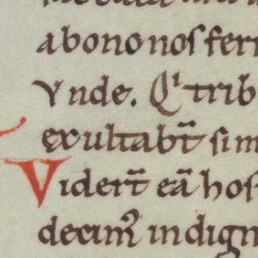 a bono nos ferr
Vnde. Qͥ trib
exultabt̄ sim
Vidert̄ eā hos
decim᷒ indign